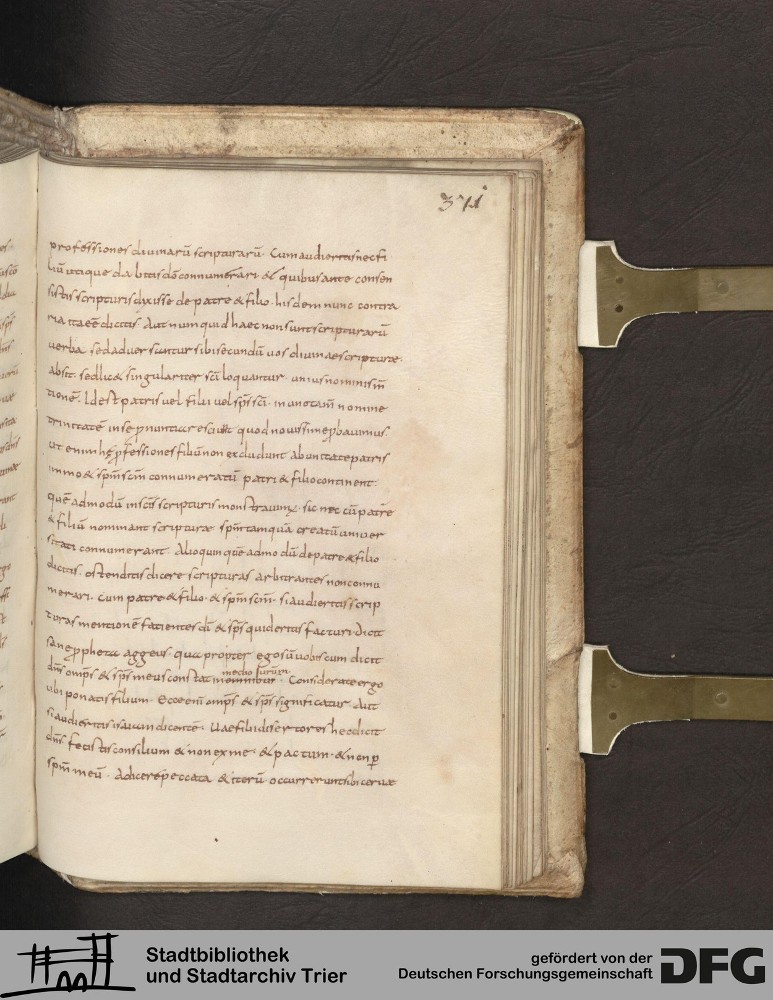 371
professiones divinarū scripturarū. Cum audieritis nec fi
liū utique dubitis dō connumerari. & quibus ante consen
sistis scripturis dixisse de patre & filio. hisdem nunc contra
ria ita eē dicitis. Aut numquid haec non sunt scripturarū
verba. sed adversantur sibi secundū vos divinae scripturae.
absit. sed lic& singulariter sc̄i loquantur. unius nominis m̄
tionē. Id est patris vel filii vel sp̄s sc̄i. in una tam̄ nomine
trinitatē inse pnuntiare scivit quod novissime pbavimus.
ut enim hę pfessiones filiū non excludunt ab unitate patris
immo & sp̄m sc̄m connumeratū patri & filio continent.
quē admodū in sc̄is scripturis monstravim;. sic nec cū patrē
& filiū nominant scripturae sp̄m tamquā creatū univer
sitati connumerant. Alioquin quē admodū de patre & filio
dicitis. ostenditis dicere scripturas arbitrantes non connu
merari. cum patre & filio. & sp̄m sc̄m. si audieritis scrip
turas mentionē facientes dī & sp̄s quid eritis facturi. Dicit
sane ppheta aggeus. quia propter ego sū vobiscum dicit
dn̄s omp̄s & sp̄s meus constat in medio vr̄ūm. Considerate ergo
ubi ponatis filium. Ecce enī omp̄s & sp̄s significatur. Aut
si audieritis isaiam dicentē. Vae filii disertores haec dicit
dn̄s. fecistis consilium & non ex me. & pactum. & non p
sp̄m meū. Adicere peccata & iterū occurrerunt sibi cervae
Stadtbibliothek
und Stadtarchiv Trier
gefördert von der
Deutschen Forschungsgemeinschaft
DFG